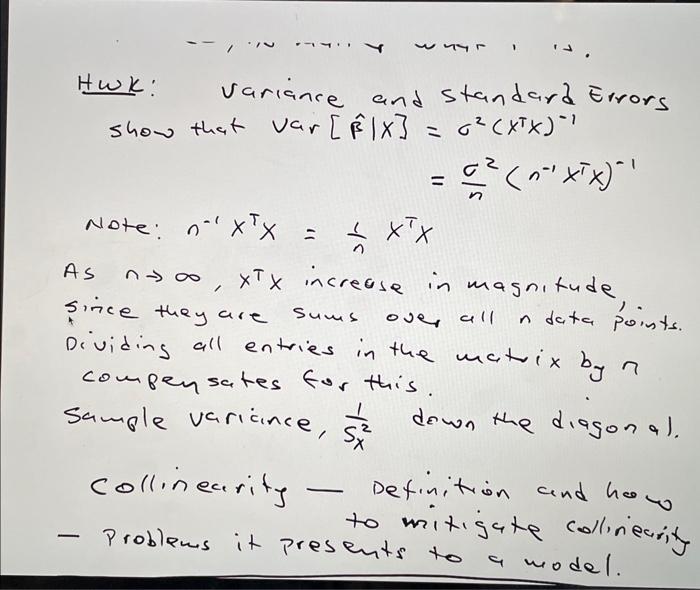 Hwk: Variance and Standard Errors
show that Var[β̂|X] = σ²(XᵀX)⁻¹
= σ²/n (n⁻¹XᵀX)⁻¹
Note: n⁻¹XᵀX = 1/n XᵀX
As n→∞, XᵀX increase in magnitude,
since they are sums over all n data points.
Dividing all entries in the matrix by n
compensates for this.
Sample variance, 1/S²ₓ down the diagonal.
Collinearity — Definition and how
to mitigate collinearity
— Problems it presents to a model.